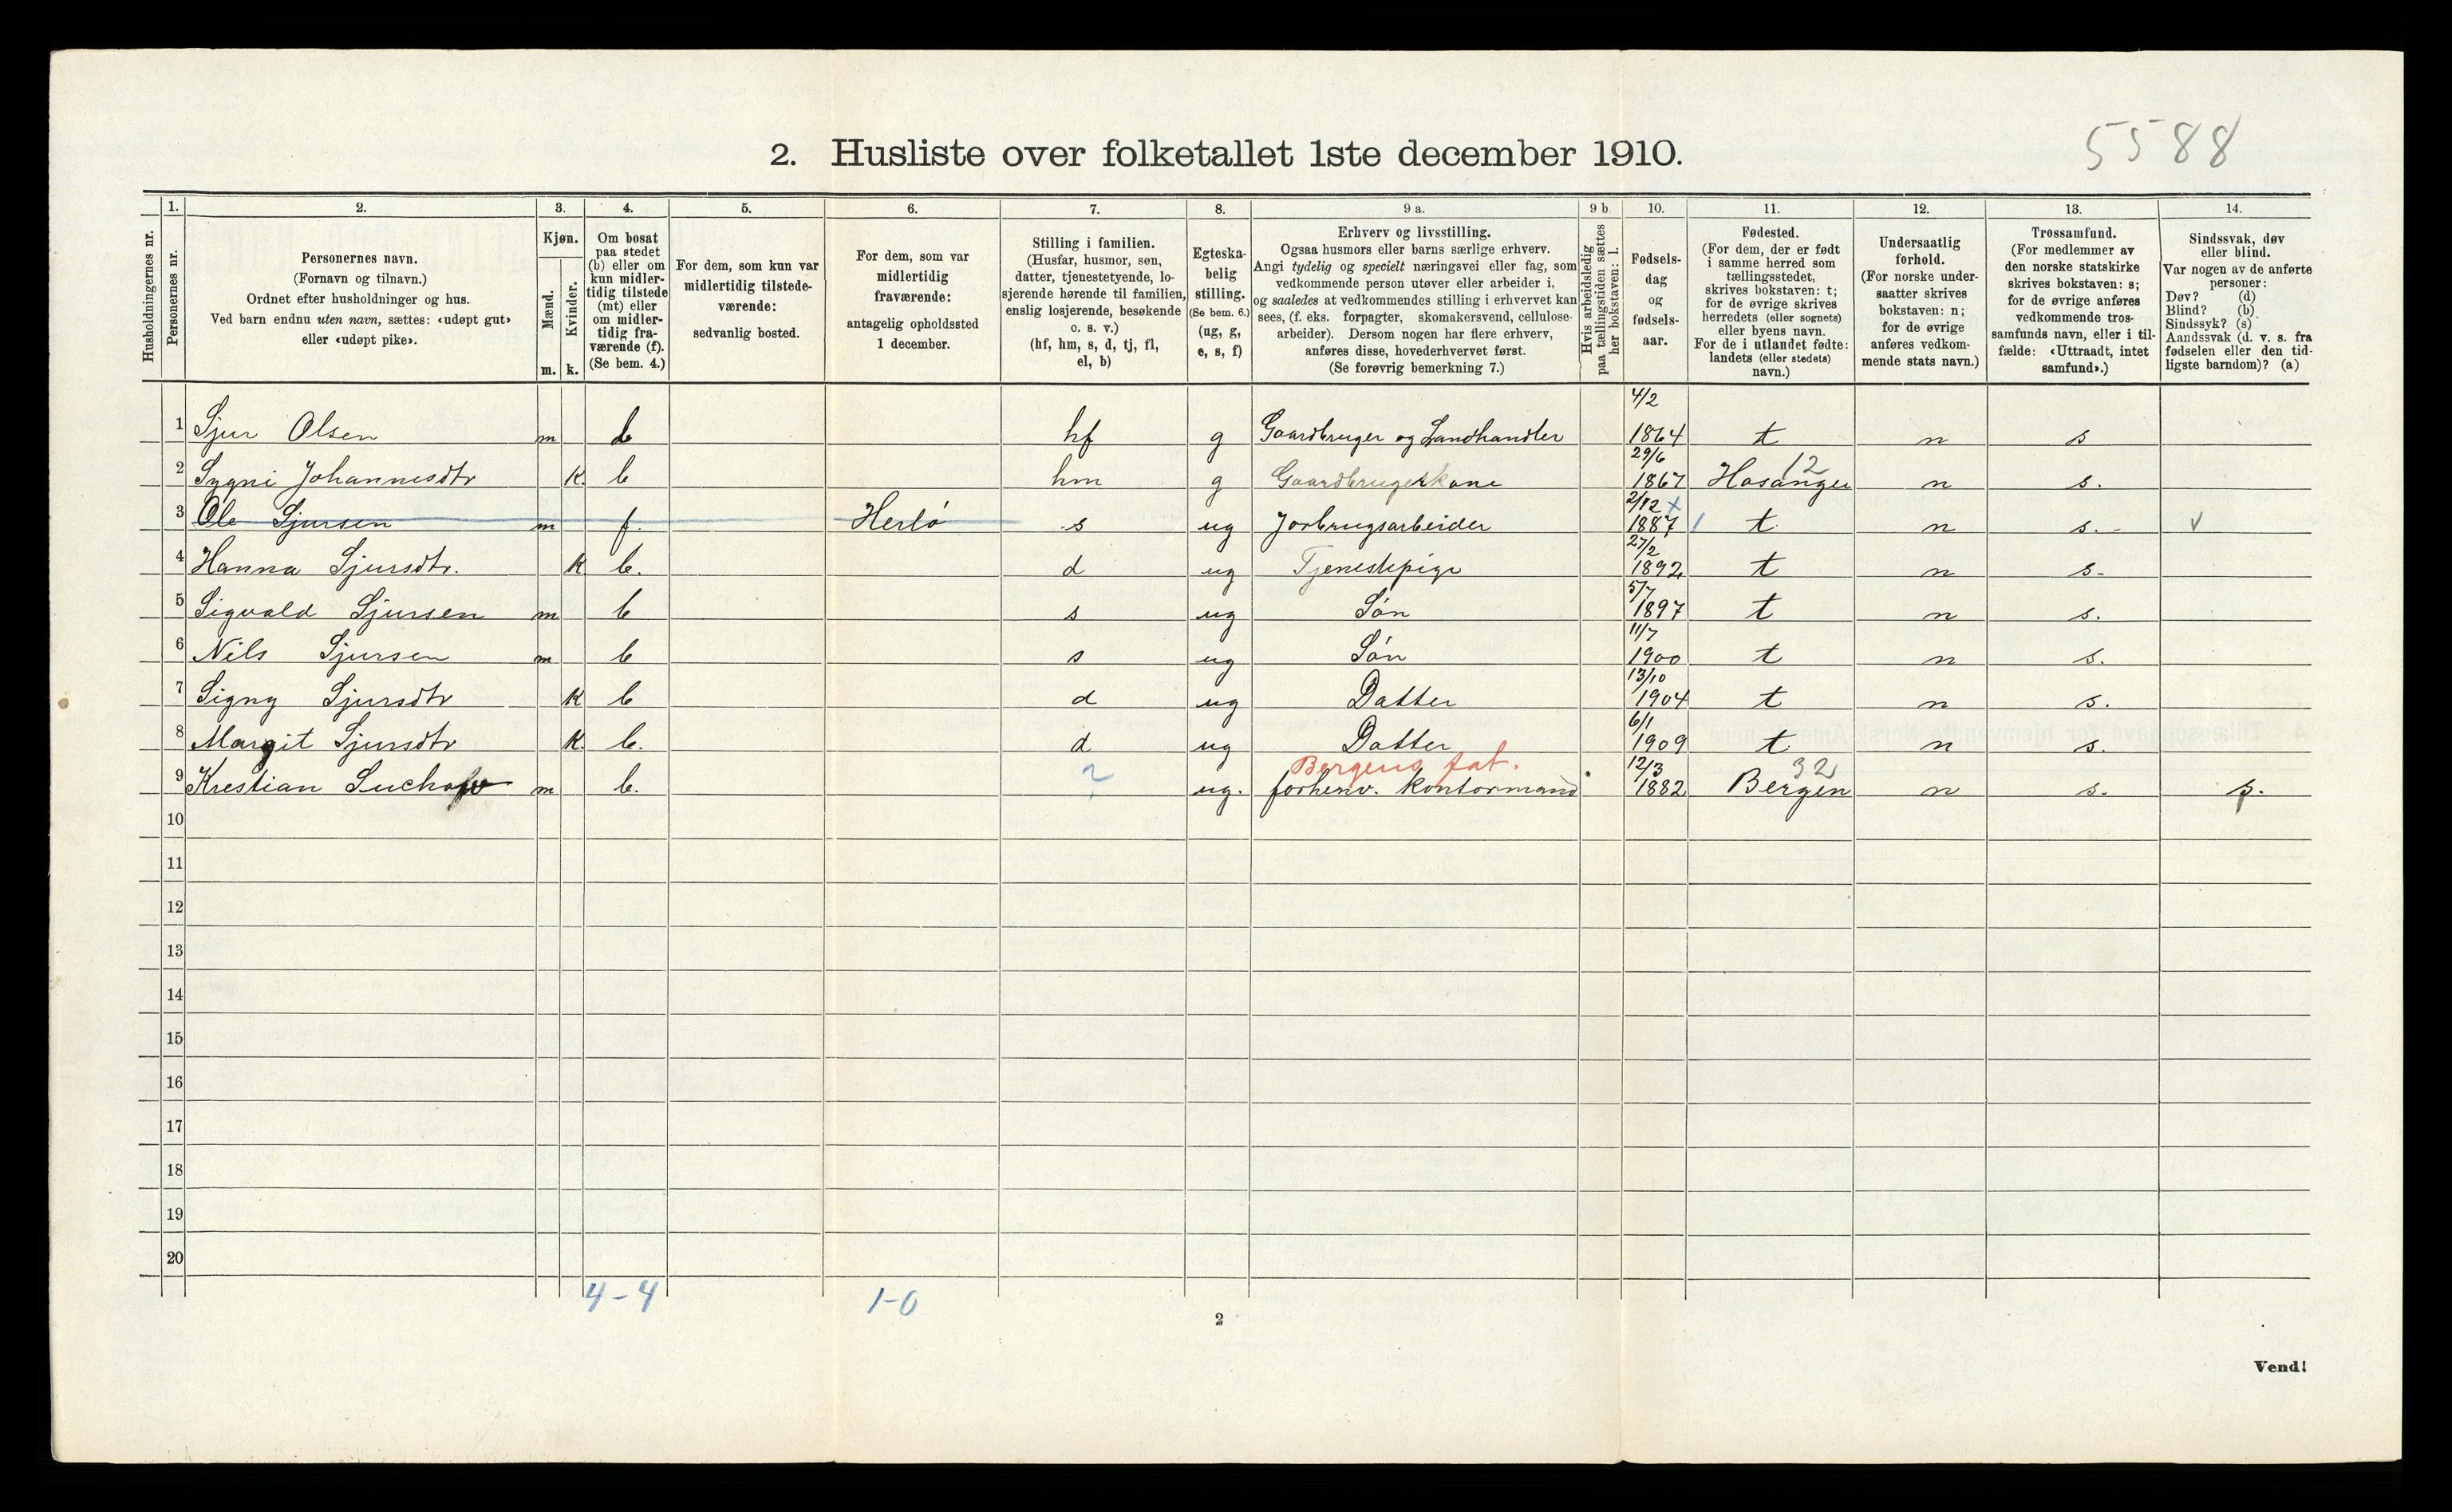 5588
2. Husliste over folketallet 1ste december 1910.
Husholdningernes nr.
1. Personernes nr.
2. Personernes navn.
(Fornavn og tilnavn.)
Ordnet efter husholdninger og hus.
Ved barn endnu uten navn, sættes: «udøpt gut»
eller «udøpt pike».
3. Kjøn.
Mænd. m.
Kvinder. k.
4. Om bosat
paa stedet
(b) eller om
kun midler-
tidig tilstede
(mt) eller
om midler-
tidig fra-
værende (f).
(Se bem. 4.)
5. For dem, som kun var
midlertidig tilstede-
værende:
sedvanlig bosted.
6. For dem, som var
midlertidig
fraværende:
antagelig opholdssted
1 december.
7. Stilling i familien.
(Husfar, husmor, søn,
datter, tjenestetyende, lo-
sjerende hørende til familien,
enslig losjerende, besøkende
o. s. v.)
(hf, hm, s, d, tj, fl,
el, b)
8. Egteska-
belig
stilling.
(Se bem. 6.)
(ug, g,
e, s, f)
9 a. Erhverv og livsstilling.
Ogsaa husmors eller barns særlige erhverv.
Angi tydelig og specielt næringsvei eller fag, som
vedkommende person utøver eller arbeider i,
og saaledes at vedkommendes stilling i erhvervet kan
sees, (f. eks. forpagter, skomakersvend, cellulose-
arbeider). Dersom nogen har flere erhverv,
anføres disse, hovederhvervet først.
(Se forøvrig bemerkning 7.)
9 b Hvis arbeidsledig
paa tællingstiden sættes
her bokstaven: l.
10. Fødsels-
dag
og
fødsels-
aar.
11. Fødested.
(For dem, der er født
i samme herred som
tællingsstedet,
skrives bokstaven: t;
for de øvrige skrives
herredets (eller sognets)
eller byens navn.
For de i utlandet fødte:
landets (eller stedets)
navn.)
12. Undersaatlig
forhold.
(For norske under-
saatter skrives
bokstaven: n;
for de øvrige
anføres vedkom-
mende stats navn.)
13. Trossamfund.
(For medlemmer av
den norske statskirke
skrives bokstaven: s;
for de øvrige anføres
vedkommende tros-
samfunds navn, eller i til-
fælde: «Uttraadt, intet
samfund».)
14. Sindssvak, døv
eller blind.
Var nogen av de anførte
personer:
Døv? (d)
Blind? (b)
Sindssyk? (s)
Aandssvak (d. v. s. fra
fødselen eller den tid-
ligste barndom)? (a)
1 Sjur Olsen m b hf g Gaardbruger og Landhandler 4/2 1864 t n s
2 Sygni Johannesdtr K. b hm g Gaardbrugerkone 29/6 1867 Hosanger 12 n s.
3 Ole Sjursen m f. Herlö s ug Jorbrugsarbeider 2/12 x 1887 1 t n s. v
4 Hanna Sjursdtr. K b. d ug Tjenestepige 27/2 1892 t n s.
5 Sigvald Sjursen m b s ug Sön 5/7 1897 t n s.
6 Nils Sjursen m b s ug Sön 11/7 1900 t n s.
7 Signy Sjursdtr K b d ug Datter 13/10 1904 t n s.
8 Margit Sjursdtr K. b. d ug Datter 6/1 1909 t n s.
Bergens fat.
9 Krestian m b. ? ug. forhenv. Kontormand 12/3 1882 Bergen 32 n s. s.
10
11
12
13
14
15
16
17
18
19
20
4-4 1-0
2
Vend!